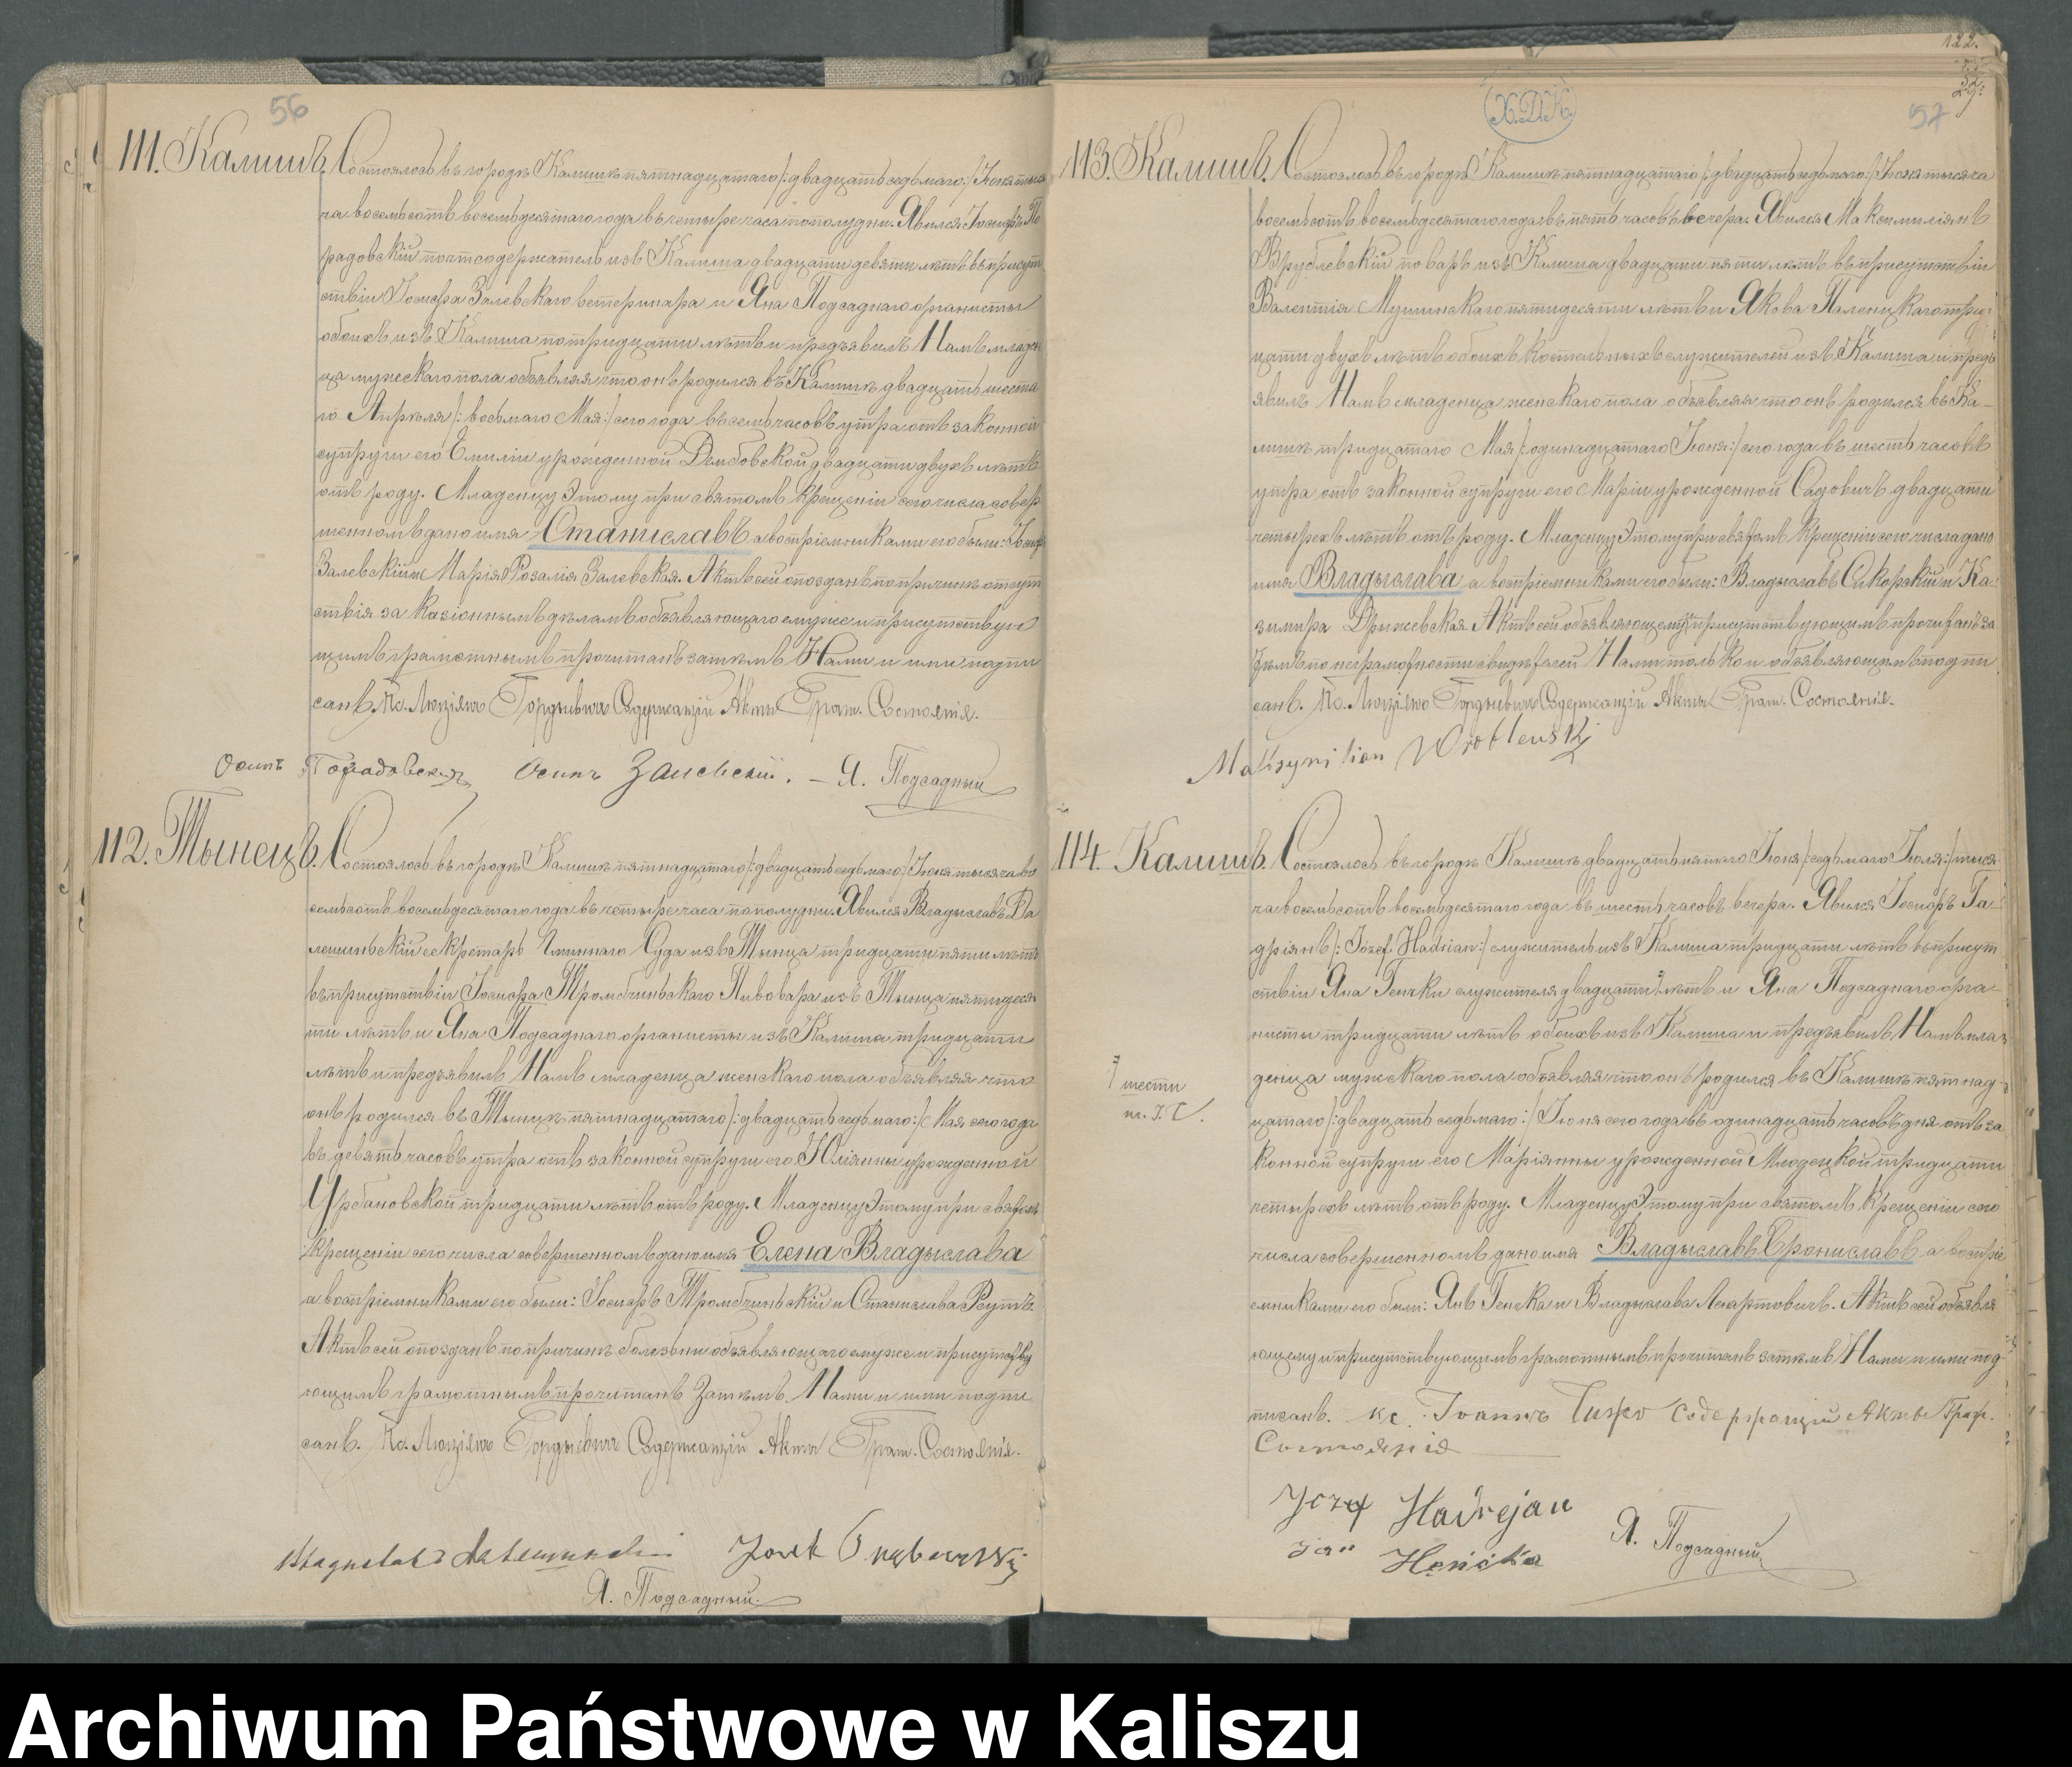 56
111. Калишъ. Состоялось въ городѣ Калишѣ пятнадцатаго /:двадцать седьмаго:/ Іюня тыся
ча восемьсотъ восемьдесятаго года въ четыре часа пополудни. Явился Іосифъ
радовскій почтсодержатель изъ Калиша двадцати девяти лѣтъ въ присут
ствіи Іосифа Залевскаго ветеринара и Яна Подсаднаго органисты
обоихъ изъ Калиша по тридцати лѣтъ и предъявилъ Намъ младен
ца мужескаго пола объявляя что онъ родился въ Калишѣ двадцать шеста
го Апрѣля /:восьмаго Мая:/ сего года въ семь часовъ утра отъ законной
супруги его Емиліи урожденной Дембовской двадцати двухъ лѣтъ
отъ роду. Младенцу этому при святомъ крещеніи сего числа совер
шенномъ дано имя Станиславъ а воспріемниками его были: Іосиф
Залевскій и Марія Розалія Залевская. Актъ сей опозданъ по причинѣ отсут
ствія за казіоннымъ дѣламъ объявляющаго ему же и присутствую
щимъ грамотнымъ прочитанъ затѣмъ Нами и ими подпи
санъ. Кс. Люціянъ Содержащій Акты Граж. Состоянія.
Осипъ Осипъ Залевскій. – Я. Подсадный
112. Тынецъ. Состоялось въ городѣ Калишѣ пятнадцатаго /:двадцать седьмаго:/ Іюня тысяча во
семьсотъ восемьдесятаго года въ четыре часа пополудни. Явился Владыславъ Да
лешинскій секретарь Гминнаго Суда изъ Тынца тридцати пяти лѣтъ
въ присутствіи Іосифа Тромбчинскаго Пивовара изъ Тынца пятидеся
ти лѣтъ и Яна Подсаднаго органисты изъ Калиша тридцати
лѣтъ и предъявилъ Намъ младенца женскаго пола объявляя что
онъ родился въ Тынцѣ пятнадцатаго /:двадцать седьмаго:/ Мая сего года
въ девять часовъ утра отъ законной супруги его Юліянны урожденной
Урбановской тридцати лѣтъ отъ роду. Младенцу этому при святомъ
крещеніи сего числа совершенномъ дано имя Елена Владыслава
а воспріемниками его были: Іосифъ Тромбчинскій и Станислава Реутъ.
Актъ сей опозданъ по причинѣ болезьни объявляющаго ему же и присутству
ющимъ грамотнымъ прочитанъ затѣмъ Нами и ими подпи
санъ. Кс. Люціянъ Содержащій Акты Граж. Состоянія.
Я. Подсадный.
122.
57
113. Калишъ. Состоялось въ городѣ Калишѣ пятнадцатаго /:двадцать седьмаго:/ Іюня тысяча
восемьсотъ восемьдесятаго года въ пять часовъ вечера. Явился Максимиліянъ
Врублевскій поваръ изъ Калиша двадцати пяти лѣтъ въ присутствіи
Валентія Мушинскаго пятидесяти лѣтъ и Якова Паленцкаго трид
цати двухъ лѣтъ обоихъ костельныхъ служителей изъ Калиша и предъ
явилъ Намъ младенца женскаго пола объявляя что онъ родился въ Ка-
лишѣ тридцатаго Мая /:одинадцатаго Іюня:/ сего года въ шесть часовъ
утра отъ законной супруги его Маріи урожденной Садовичъ двадцати
четырехъ лѣтъ отъ роду. Младенцу этому при святомъ крещеніи сего числа дано
имя Владыслава а воспріемниками его были: Владыславъ Сикорскій и Ка-
зимира Држевская. Актъ сей объявляющему и присутствующимъ прочитанъ за
тѣмъ по неграмотности свидѣтелей Нами только и объявляющимъ подпи
санъ. Кс. Люціянъ Содержащій Акты Граж. Состоянія.
Maksymilian Wróblewski
114. Калишъ. Состоялось въ городѣ Калишѣ двадцать пятаго Іюня /:седьмаго Іюля:/ тыся
ча восемьсотъ восемьдесятаго года въ шесть часовъ вечера. Явился Іосифъ Га-
дріянъ /:Józef Hadrian:/ служитель изъ Калиша тридцати лѣтъ въ присут
ствіи Яна Генчки служителя двадцати лѣтъ и Яна Подсаднаго орга-
нисты тридцати лѣтъ обоихъ изъ Калиша и предъявилъ Намъ мла
денца мужскаго пола объявляя что онъ родился въ Калишѣ пятнад-
шести
цатаго /:двадцать седьмаго:/ Іюня сего года въ одинадцать часовъ дня отъ за
конной супруги его Маріянны урожденной Млодецкой тридцати
четырехъ лѣтъ отъ роду. Младенцу этому при святомъ крещеніи сего
числа совершенномъ дано имя Владыславъ Брониславъ а воспріе
емниками его были: Янъ Генчка и Владыслава Ленартовичъ. Актъ сей объявля
ющему и присутствующимъ грамотнымъ прочитанъ затѣмъ Нами и ими под-
писанъ. Кс. Содержащій Акты Граж.
Состоянія
Józef Hadrejan
Jan Henčka Я. Подсадный
Archiwum Państwowe w Kaliszu